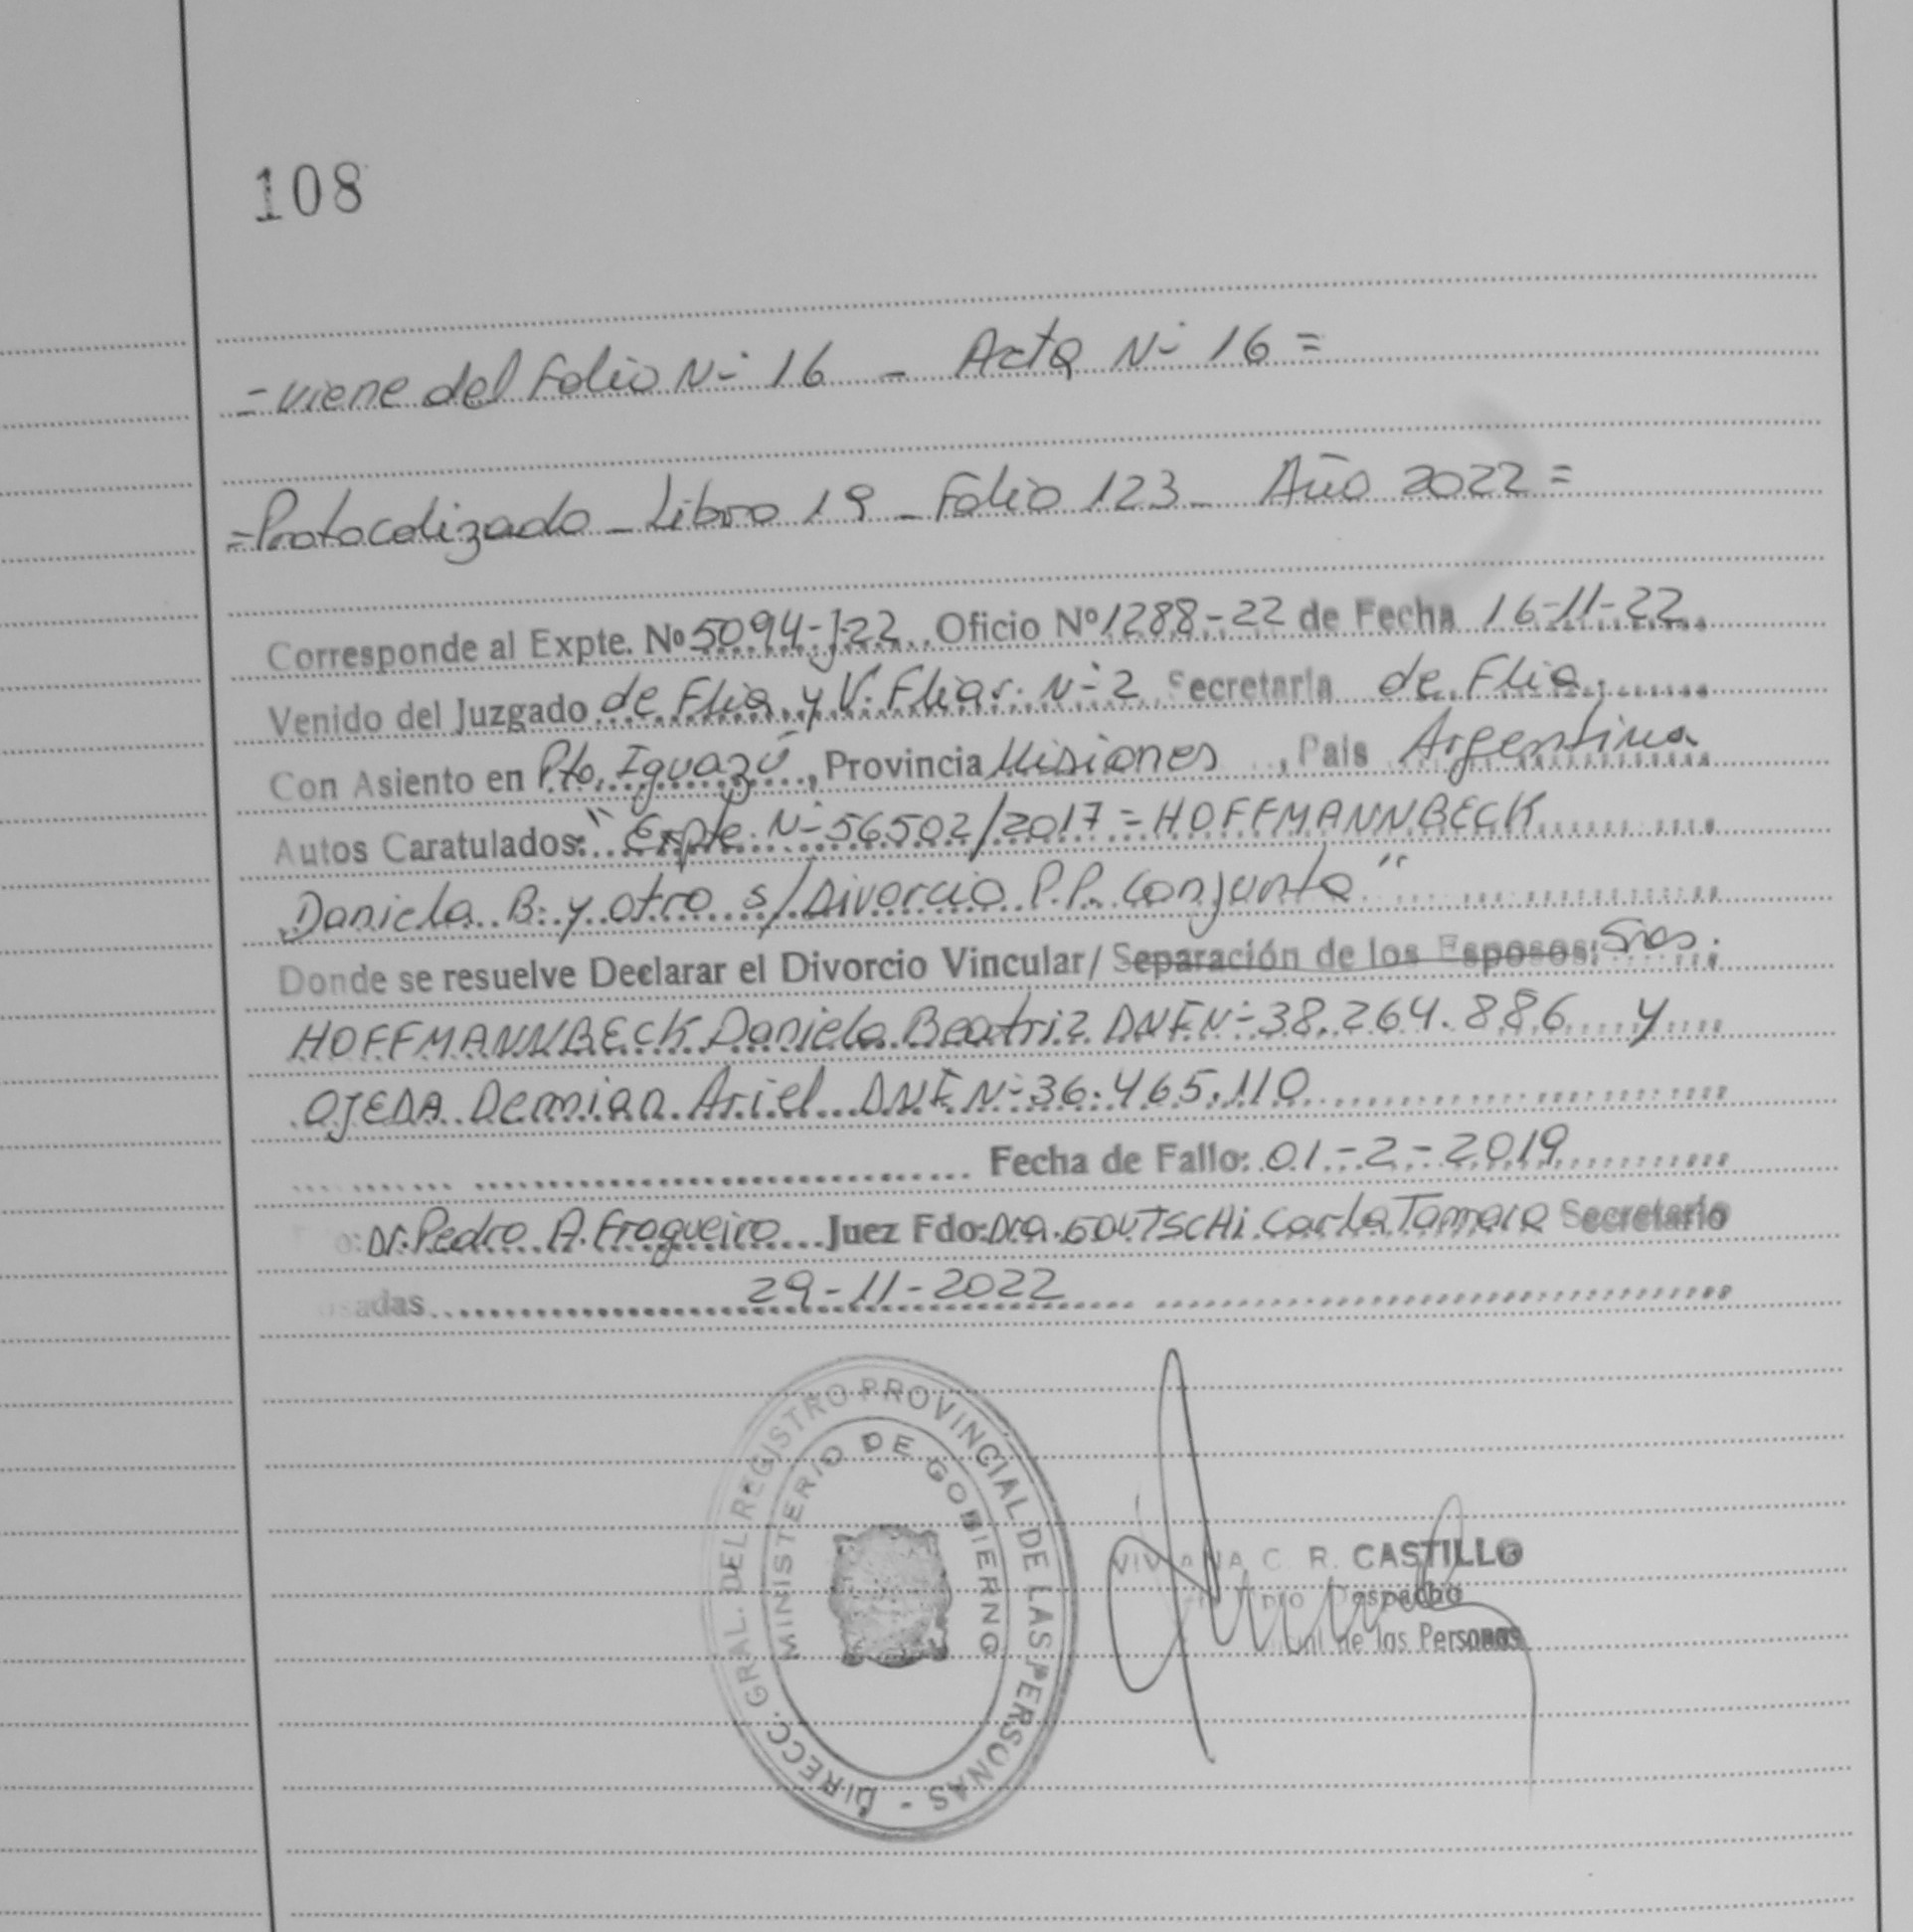 108
= viene del Folio N- 16 - Acta N- 16 =
= Protocolizado - Libro 19 - Folio 123 - Año 2022 =
Corresponde al Expte. Nº 5094-J-22 Oficio Nº 1288-22 de Fecha 16-11-22
Venido del Juzgado de Flia. y V. Fliar. N-2 Secretaría de Flia.
Con Asiento en Pto. Iguazú, Provincia Misiones, País Argentina
Autos Caratulados: "Expte. N-56502/2017 = HOFFMANNBECK
Daniela B. y otro s/Divorcio P.P. Conjunta"
Donde se resuelve Declarar el Divorcio Vincular/ Separación de los Esposos: Sres.
HOFFMANNBECK Daniela Beatriz DNI N-38.264.886 y
OJEDA Demian Ariel DNI N-36.465.110
Fecha de Fallo: 01-2-2019
Dr. Pedro A. Fragueiro Juez Fdo: Dra. Carla Tamara Secretario
29-11-2022
DIRECC. GRAL. DEL REGISTRO PROVINCIAL DE LAS PERSONAS -
MINISTERIO DE GOBIERNO
VIVIANA C. R. CASTILLO
Dpto Despacho
de las Personas